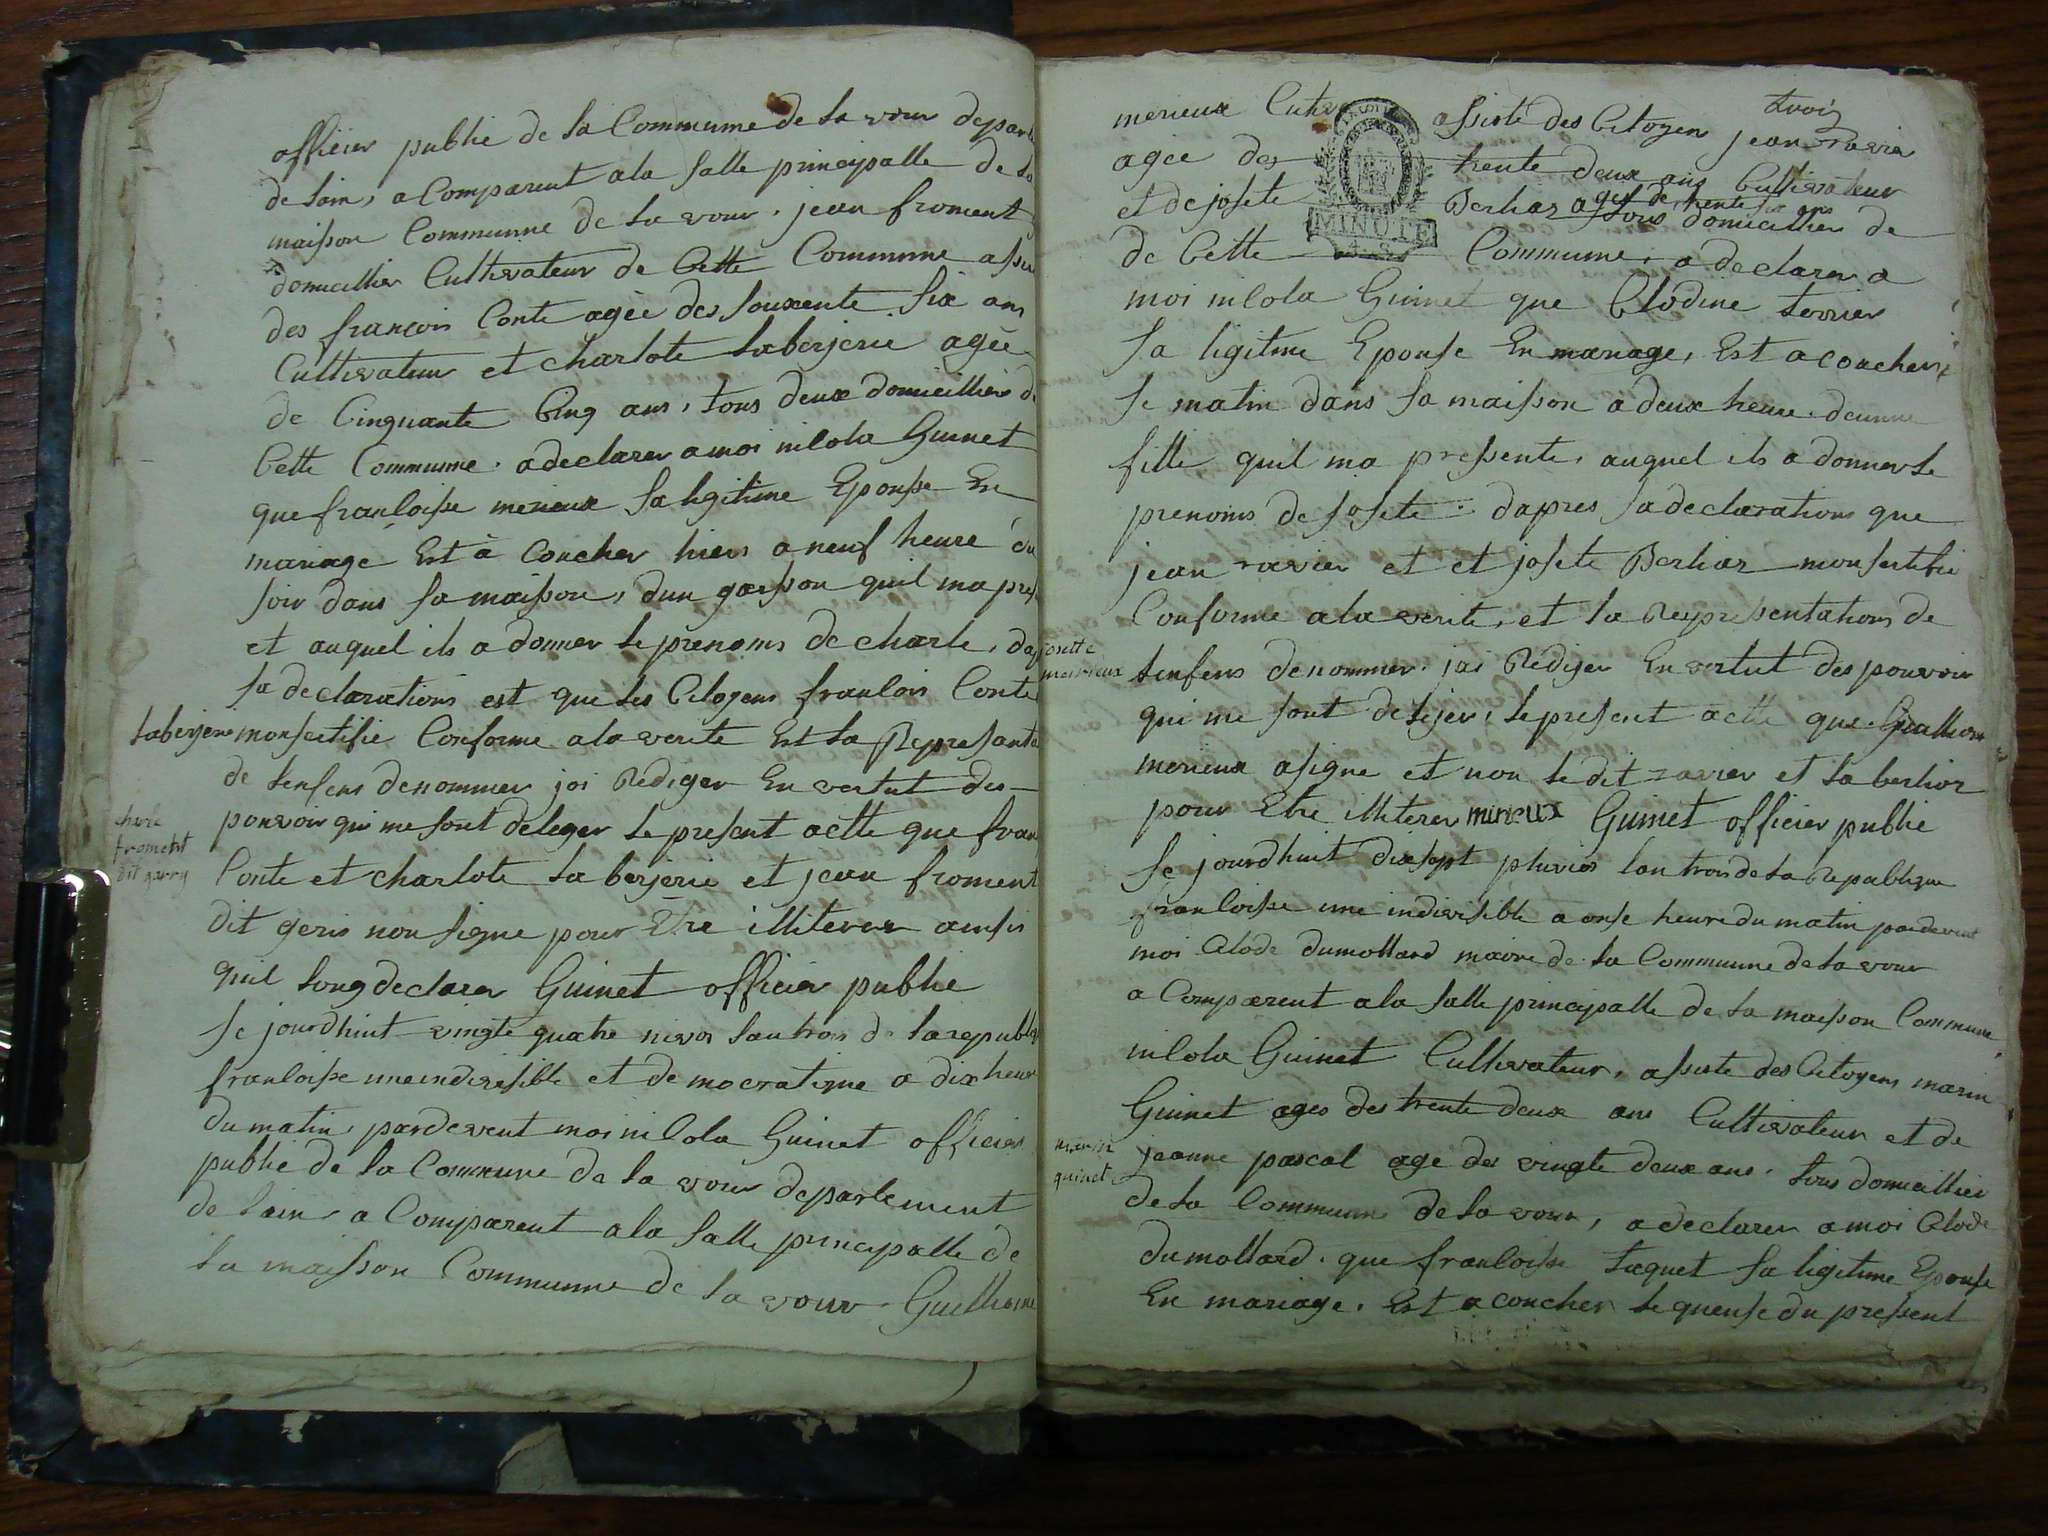 officier publie de la Commune de la vour depart
de lain, a Comparent ala salle principalle de la
maison Communne de la vour, jean froment
domicillier Cultivateur de Cette Commune assis
des francois Conte agée des souxente six ans
Cultivateur et charlote laberjerie agée
de Cinquante Cinq ans, tous deux domicillier de
Cette Commune. a declarer a moi nicola Guinet
que francloisse merieux sa ligitime Epousse En
mariage Est à Coucher hiers a neuf heure du
soir dans sa maison, dun garsson quil ma pres
et auquel ils a donner le prenoms de charle, dap
sa declarations est que les Citoyens francois Conte
laberjerie monsertifie Conforme ala verite Est la Represante
de lenfens denommer jai Rediger En vertut des
pouvoir qui me sont deleger le present actte que fran
Conte et charlote la berjerie et jean froment
dit geris non signe pour Etre illiterer ainsis
quil long declarer Guinet officier publie
charle
froment
dit garry
Le jourdhuit vingte quatre nivos lan trois de la republi
francloisse une indivisible et democratique a dix heur
du matin, pardevent moi nicola Guinet officier
publie de la Commune de la vour departement
de lain, a Comparent ala salle principalle de
la maisson Communne de la vour. Guilliome
merieux Cultiv assiste des Citoyen jean ravier
agee des trente deux ans Cultivateur
et de josete Berliaz agee de trente six ans tous domicillier de
MINUTE
de Cette Commune, a declarer a
moi nicola Guinet que Clodine terrier
sa ligitime Epousse En mariage, Est a coucher
le matin dans sa maisson a deux heure deunne
fille quil ma pressente, auquel ils a donner le
prenoms de josete. dapres sa declarations que
jean ravier et et josete Berliaz monsertifie
Conforme ala verite, et la Representations de
josette
merieux
lenfens denommer. jai Rediger En vertut des pouvoir
qui me sont deleger, le present actte que Guilliome
merieux asigne et non le dit ravier et la berliaz
pour Etre illiterer mirieux Guinet officier publie
Le jourdhuit dixsept pluvios lan trois de la Republique
francloisse une indivisible a onse heure du matin pardevent
moi Clode dumollard maire de la Commune de la vour
a Comparent ala salle principalle de la maisson Commune
nicola Guinet Cultivateur, assiste des Citoyens marin
Guinet ages des trente deux ans Cultivateur et de
marin
guinet
jeanne pascal age des vingte deux ans. tous domicillier
de la Commune de la vour, a declarer a moi Clode
dumollard. que francloisse taquet sa ligitime Epouse
En mariage. Est a coucher le quense du pressent